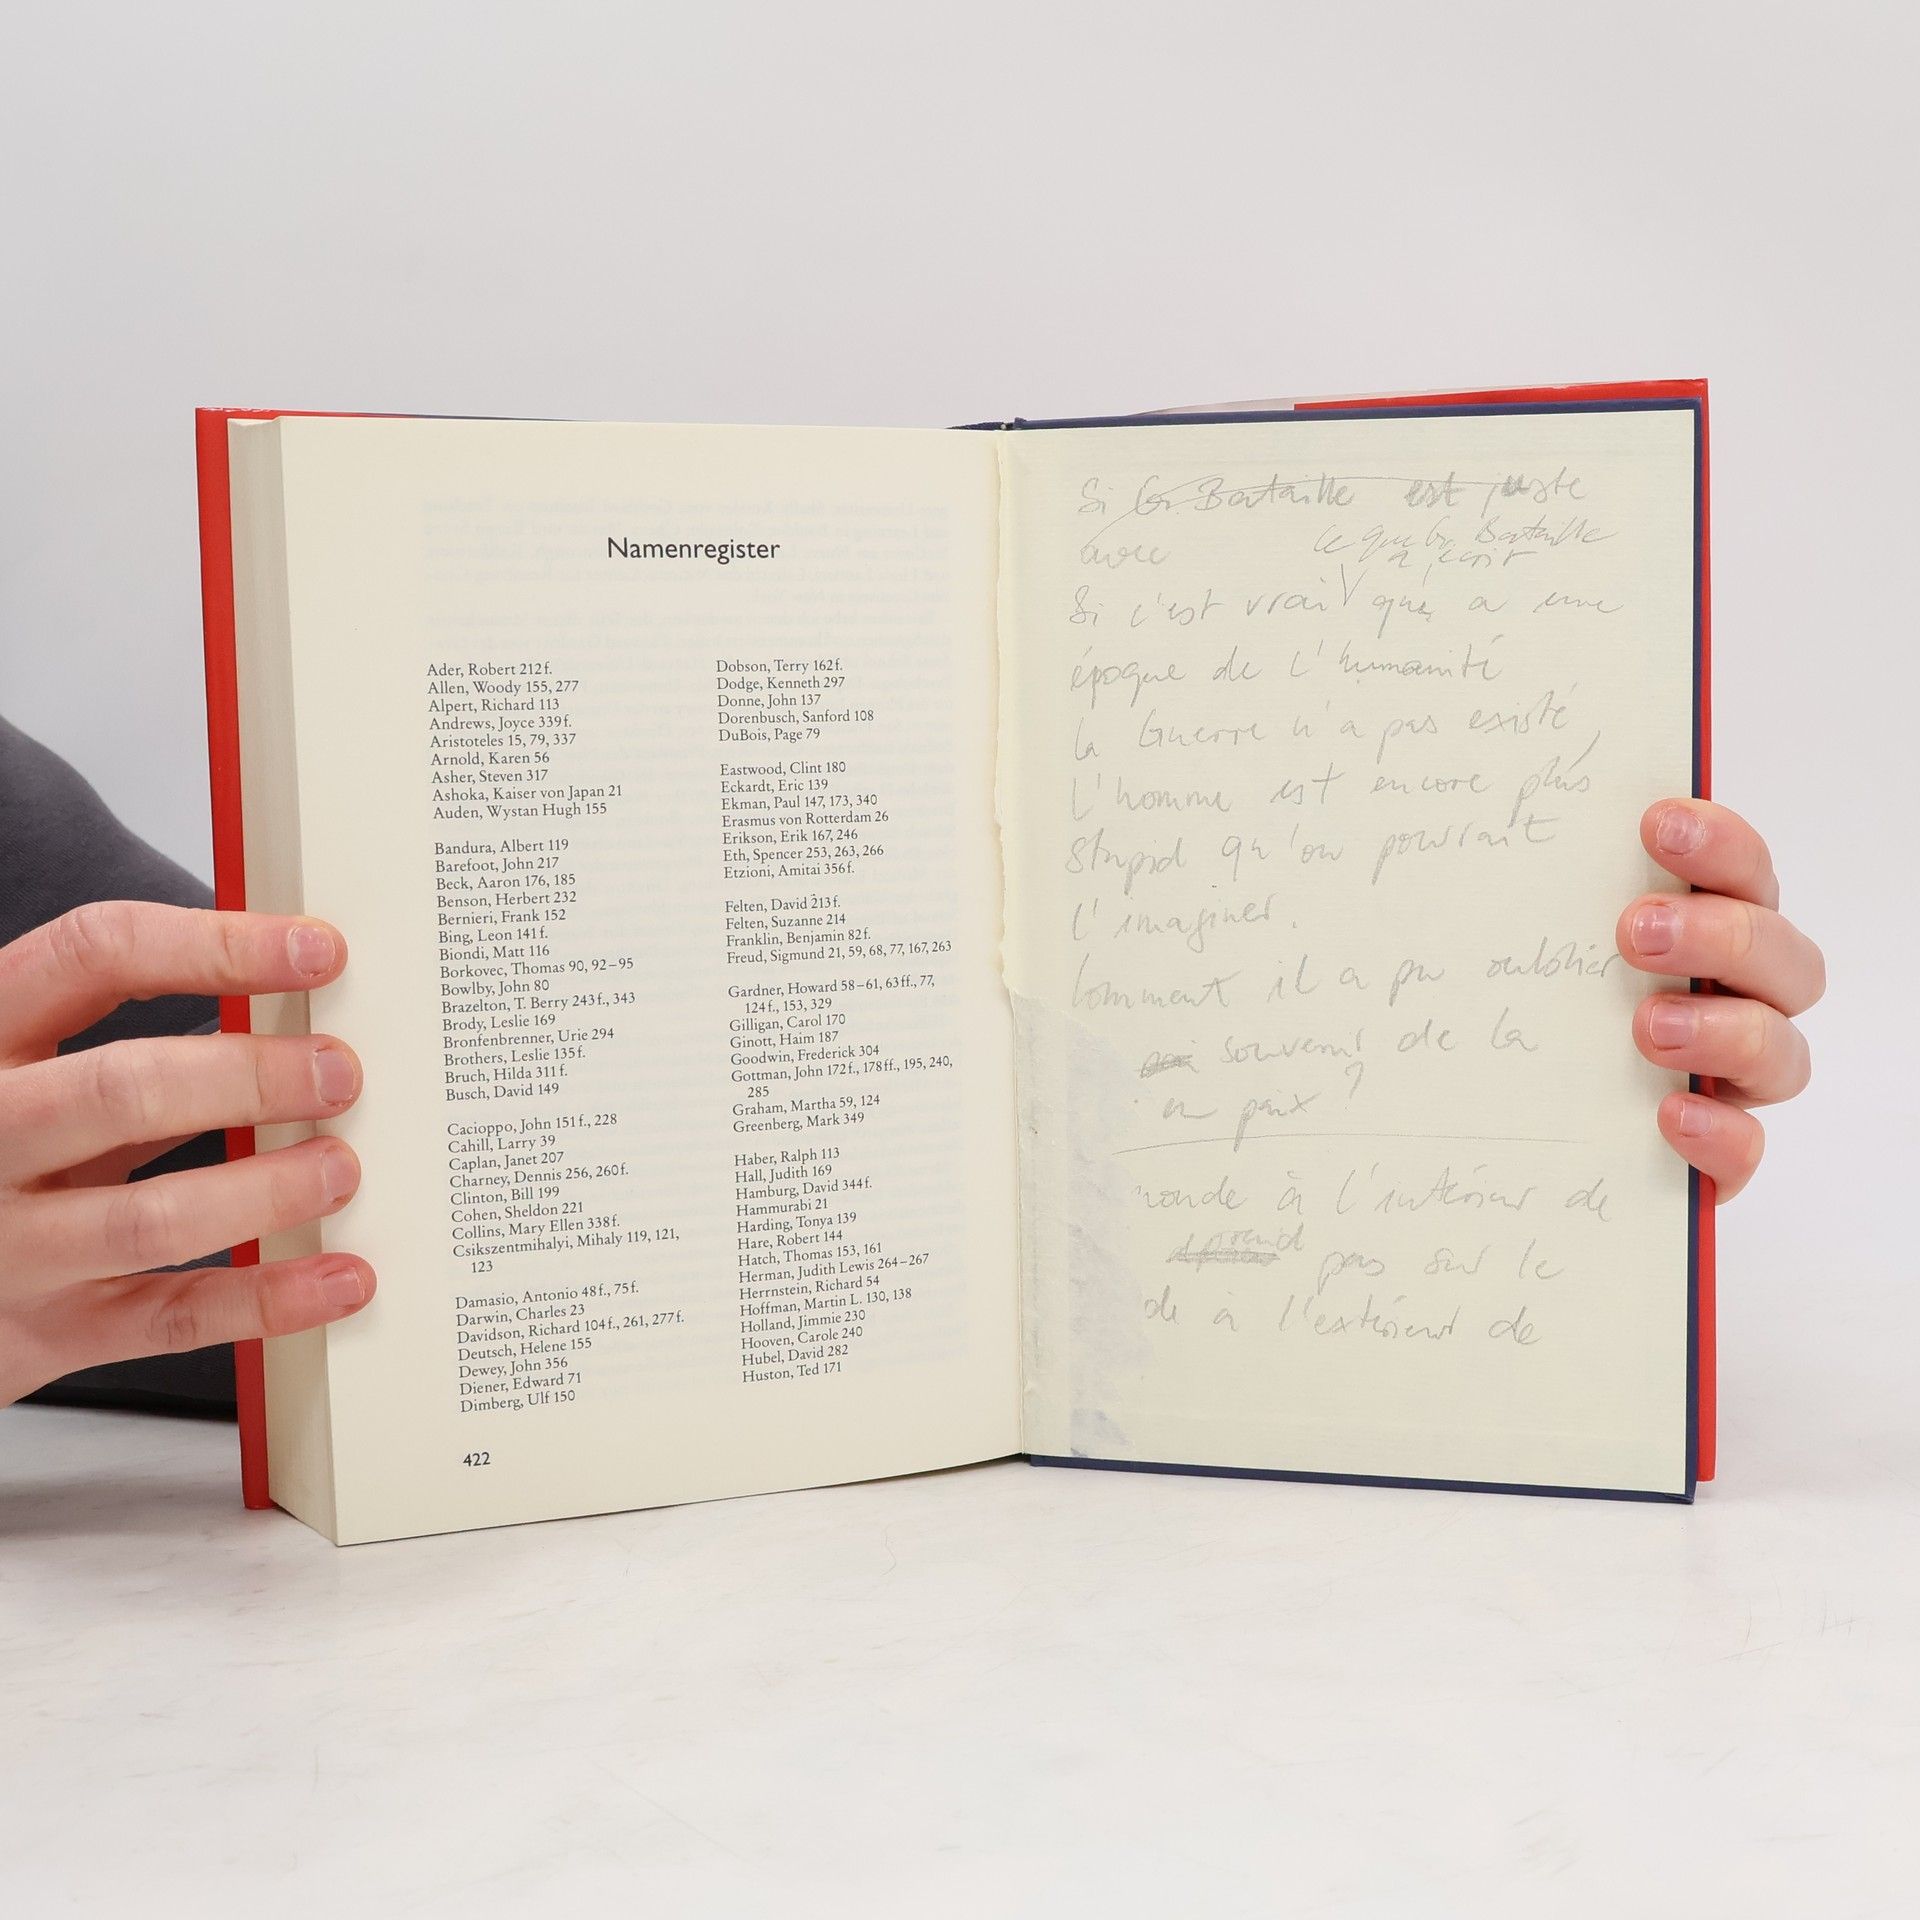 Namenregister
Ader, Robert 212 f.
Allen, Woody 155, 277
Alpert, Richard 113
Andrews, Joyce 339 f.
Aristoteles 15, 79, 337
Arnold, Karen 56
Asher, Steven 317
Ashoka, Kaiser von Japan 21
Auden, Wystan Hugh 155
Bandura, Albert 119
Barefoot, John 217
Beck, Aaron 176, 185
Benson, Herbert 232
Bernieri, Frank 152
Bing, Leon 141 f.
Biondi, Matt 116
Borkovec, Thomas 90, 92–95
Bowlby, John 80
Brazelton, T. Berry 243 f., 343
Brody, Leslie 169
Bronfenbrenner, Urie 294
Brothers, Leslie 135 f.
Bruch, Hilda 311 f.
Busch, David 149
Cacioppo, John 151 f., 228
Cahill, Larry 39
Caplan, Janet 207
Charney, Dennis 256, 260 f.
Clinton, Bill 199
Cohen, Sheldon 221
Collins, Mary Ellen 338 f.
Csikszentmihalyi, Mihaly 119, 121,
123
Damasio, Antonio 48 f., 75 f.
Darwin, Charles 23
Davidson, Richard 104 f., 261, 277 f.
Deutsch, Helene 155
Dewey, John 356
Diener, Edward 71
Dimberg, Ulf 150
Dobson, Terry 162 f.
Dodge, Kenneth 297
Donne, John 137
Dorenbusch, Sanford 108
DuBois, Page 79
Eastwood, Clint 180
Eckardt, Eric 139
Ekman, Paul 147, 173, 340
Erasmus von Rotterdam 26
Erikson, Erik 167, 246
Eth, Spencer 253, 263, 266
Etzioni, Amitai 356 f.
Felten, David 213 f.
Felten, Suzanne 214
Franklin, Benjamin 82 f.
Freud, Sigmund 21, 59, 68, 77, 167, 263
Gardner, Howard 58–61, 63 ff., 77,
124 f., 153, 329
Gilligan, Carol 170
Ginott, Haim 187
Goodwin, Frederick 304
Gottman, John 172 f., 178 ff., 195, 240,
285
Graham, Martha 59, 124
Greenberg, Mark 349
Haber, Ralph 113
Hall, Judith 169
Hamburg, David 344 f.
Hammurabi 21
Harding, Tonya 139
Hare, Robert 144
Hatch, Thomas 153, 161
Herman, Judith Lewis 264–267
Herrnstein, Richard 54
Hoffman, Martin L. 130, 138
Holland, Jimmie 230
Hooven, Carole 240
Hubel, David 282
Huston, Ted 171
422
Si G. Bataille est juste
avec
ce que G. Bataille
a écrit
Si c'est vrai qu'à une
époque de l'humanité
la Guerre n'a pas existé,
l'homme est encore plus
stupid qu'on pourrait
l'imaginer.
Comment il a pu oublier
souvenir de la
en paix?
monde à l'intérieur de
prend pas sur le
de à l'extérieur de